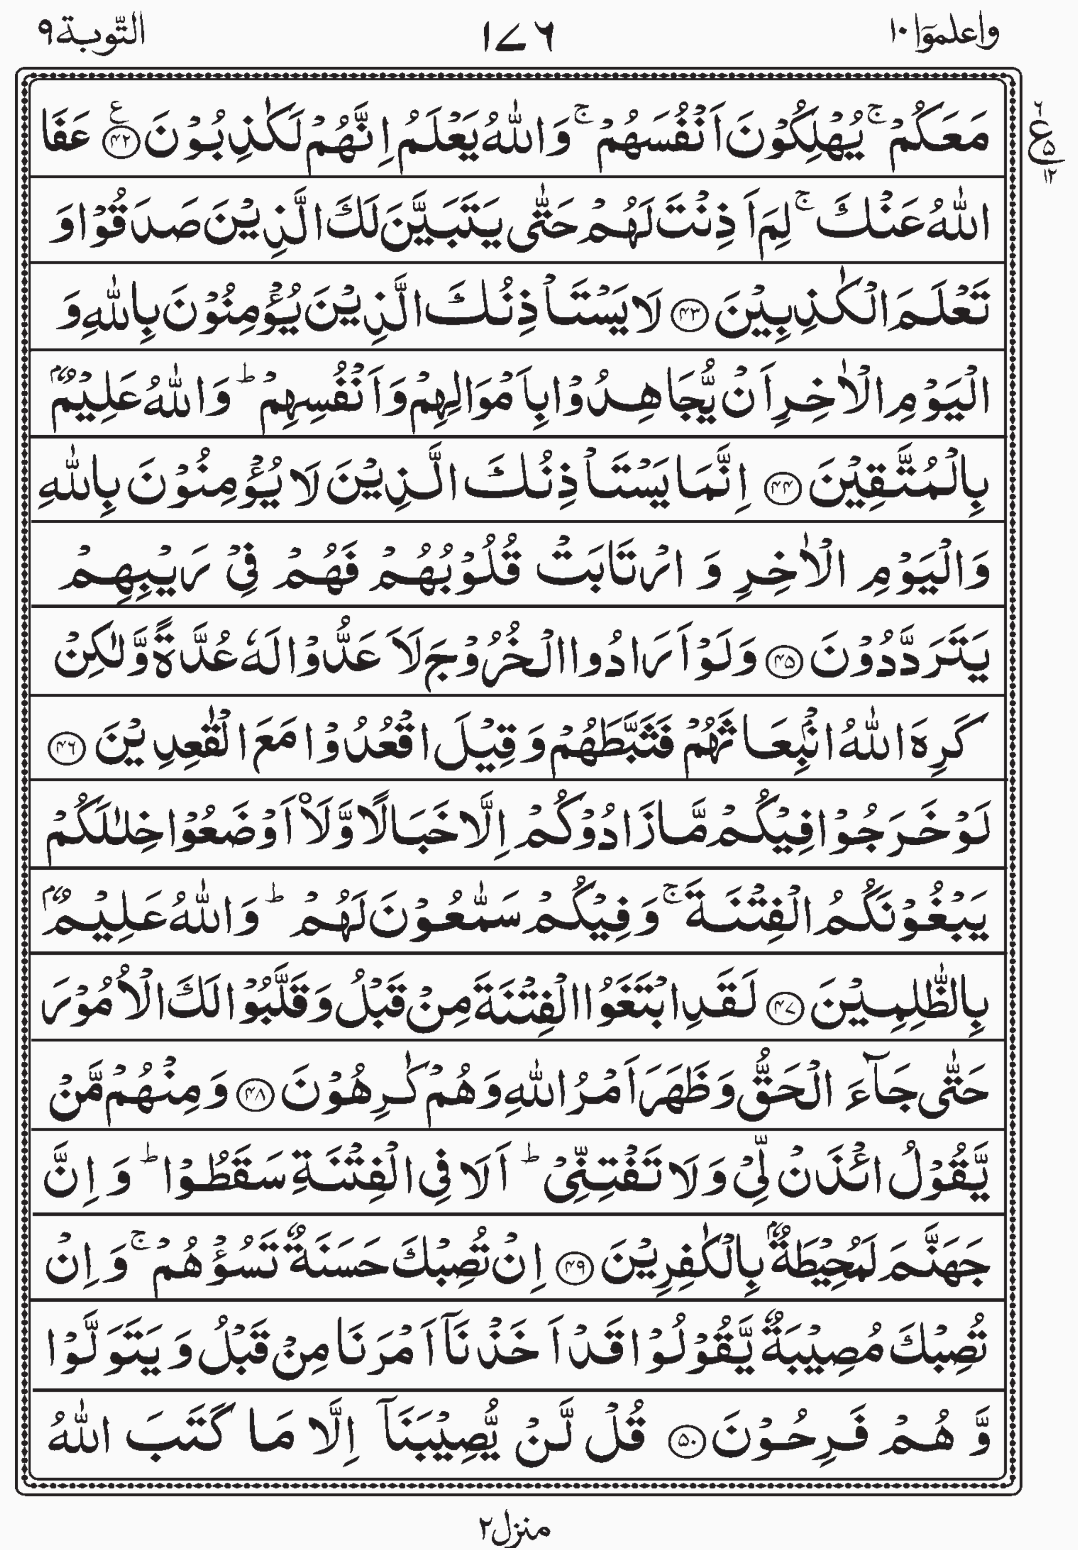 واعلموٓا ١٠ ١٧٦ التّوبة ٩
مَعَكُمْ ۚ يُهْلِكُوْنَ اَنْفُسَهُمْ ۚ وَاللّٰهُ يَعْلَمُ اِنَّهُمْ لَكٰذِبُوْنَ ﴿۴۲﴾ ع عَفَا
ع ٦ ٥ ١٢
اللّٰهُ عَنْكَ ۚ لِمَ اَذِنْتَ لَهُمْ حَتّٰى يَتَبَيَّنَ لَكَ الَّذِيْنَ صَدَقُوْا وَ
تَعْلَمَ الْكٰذِبِيْنَ ﴿۴۳﴾ لَا يَسْتَاْذِنُكَ الَّذِيْنَ يُؤْمِنُوْنَ بِاللّٰهِ وَ
الْيَوْمِ الْاٰخِرِ اَنْ يُّجَاهِدُوْا بِاَمْوَالِهِمْ وَاَنْفُسِهِمْ ؕ وَاللّٰهُ عَلِيْمٌۢ
بِالْمُتَّقِيْنَ ﴿۴۴﴾ اِنَّمَا يَسْتَاْذِنُكَ الَّذِيْنَ لَا يُؤْمِنُوْنَ بِاللّٰهِ
وَالْيَوْمِ الْاٰخِرِ وَ ارْتَابَتْ قُلُوْبُهُمْ فَهُمْ فِيْ رَيْبِهِمْ
يَتَرَدَّدُوْنَ ﴿۴۵﴾ وَلَوْ اَرَادُوا الْخُرُوْجَ لَاَعَدُّوْا لَهٗ عُدَّةً وَّلٰكِنْ
كَرِهَ اللّٰهُ انْۢبِعَاثَهُمْ فَثَبَّطَهُمْ وَقِيْلَ اقْعُدُوْا مَعَ الْقٰعِدِيْنَ ﴿۴۶﴾
لَوْ خَرَجُوْا فِيْكُمْ مَّا زَادُوْكُمْ اِلَّا خَبَالًا وَّلَا۟اَوْضَعُوْا خِلٰلَكُمْ
يَبْغُوْنَكُمُ الْفِتْنَةَ ۚ وَفِيْكُمْ سَمّٰعُوْنَ لَهُمْ ؕ وَاللّٰهُ عَلِيْمٌۢ
بِالظّٰلِمِيْنَ ﴿۴۷﴾ لَقَدِ ابْتَغَوُا الْفِتْنَةَ مِنْ قَبْلُ وَقَلَّبُوْا لَكَ الْاُمُوْرَ
حَتّٰى جَآءَ الْحَقُّ وَظَهَرَ اَمْرُ اللّٰهِ وَهُمْ كٰرِهُوْنَ ﴿۴۸﴾ وَمِنْهُمْ مَّنْ
يَّقُوْلُ ائْذَنْ لِّيْ وَلَا تَفْتِنِّيْ ؕ اَلَا فِي الْفِتْنَةِ سَقَطُوْا ؕ وَ اِنَّ
جَهَنَّمَ لَمُحِيْطَةٌۢ بِالْكٰفِرِيْنَ ﴿۴۹﴾ اِنْ تُصِبْكَ حَسَنَةٌ تَسُؤْهُمْ ۚ وَ اِنْ
تُصِبْكَ مُصِيْبَةٌ يَّقُوْلُوْا قَدْ اَخَذْنَآ اَمْرَنَا مِنْ قَبْلُ وَ يَتَوَلَّوْا
وَّ هُمْ فَرِحُوْنَ ﴿۵۰﴾ قُلْ لَّنْ يُّصِيْبَنَآ اِلَّا مَا كَتَبَ اللّٰهُ
منزل ٢